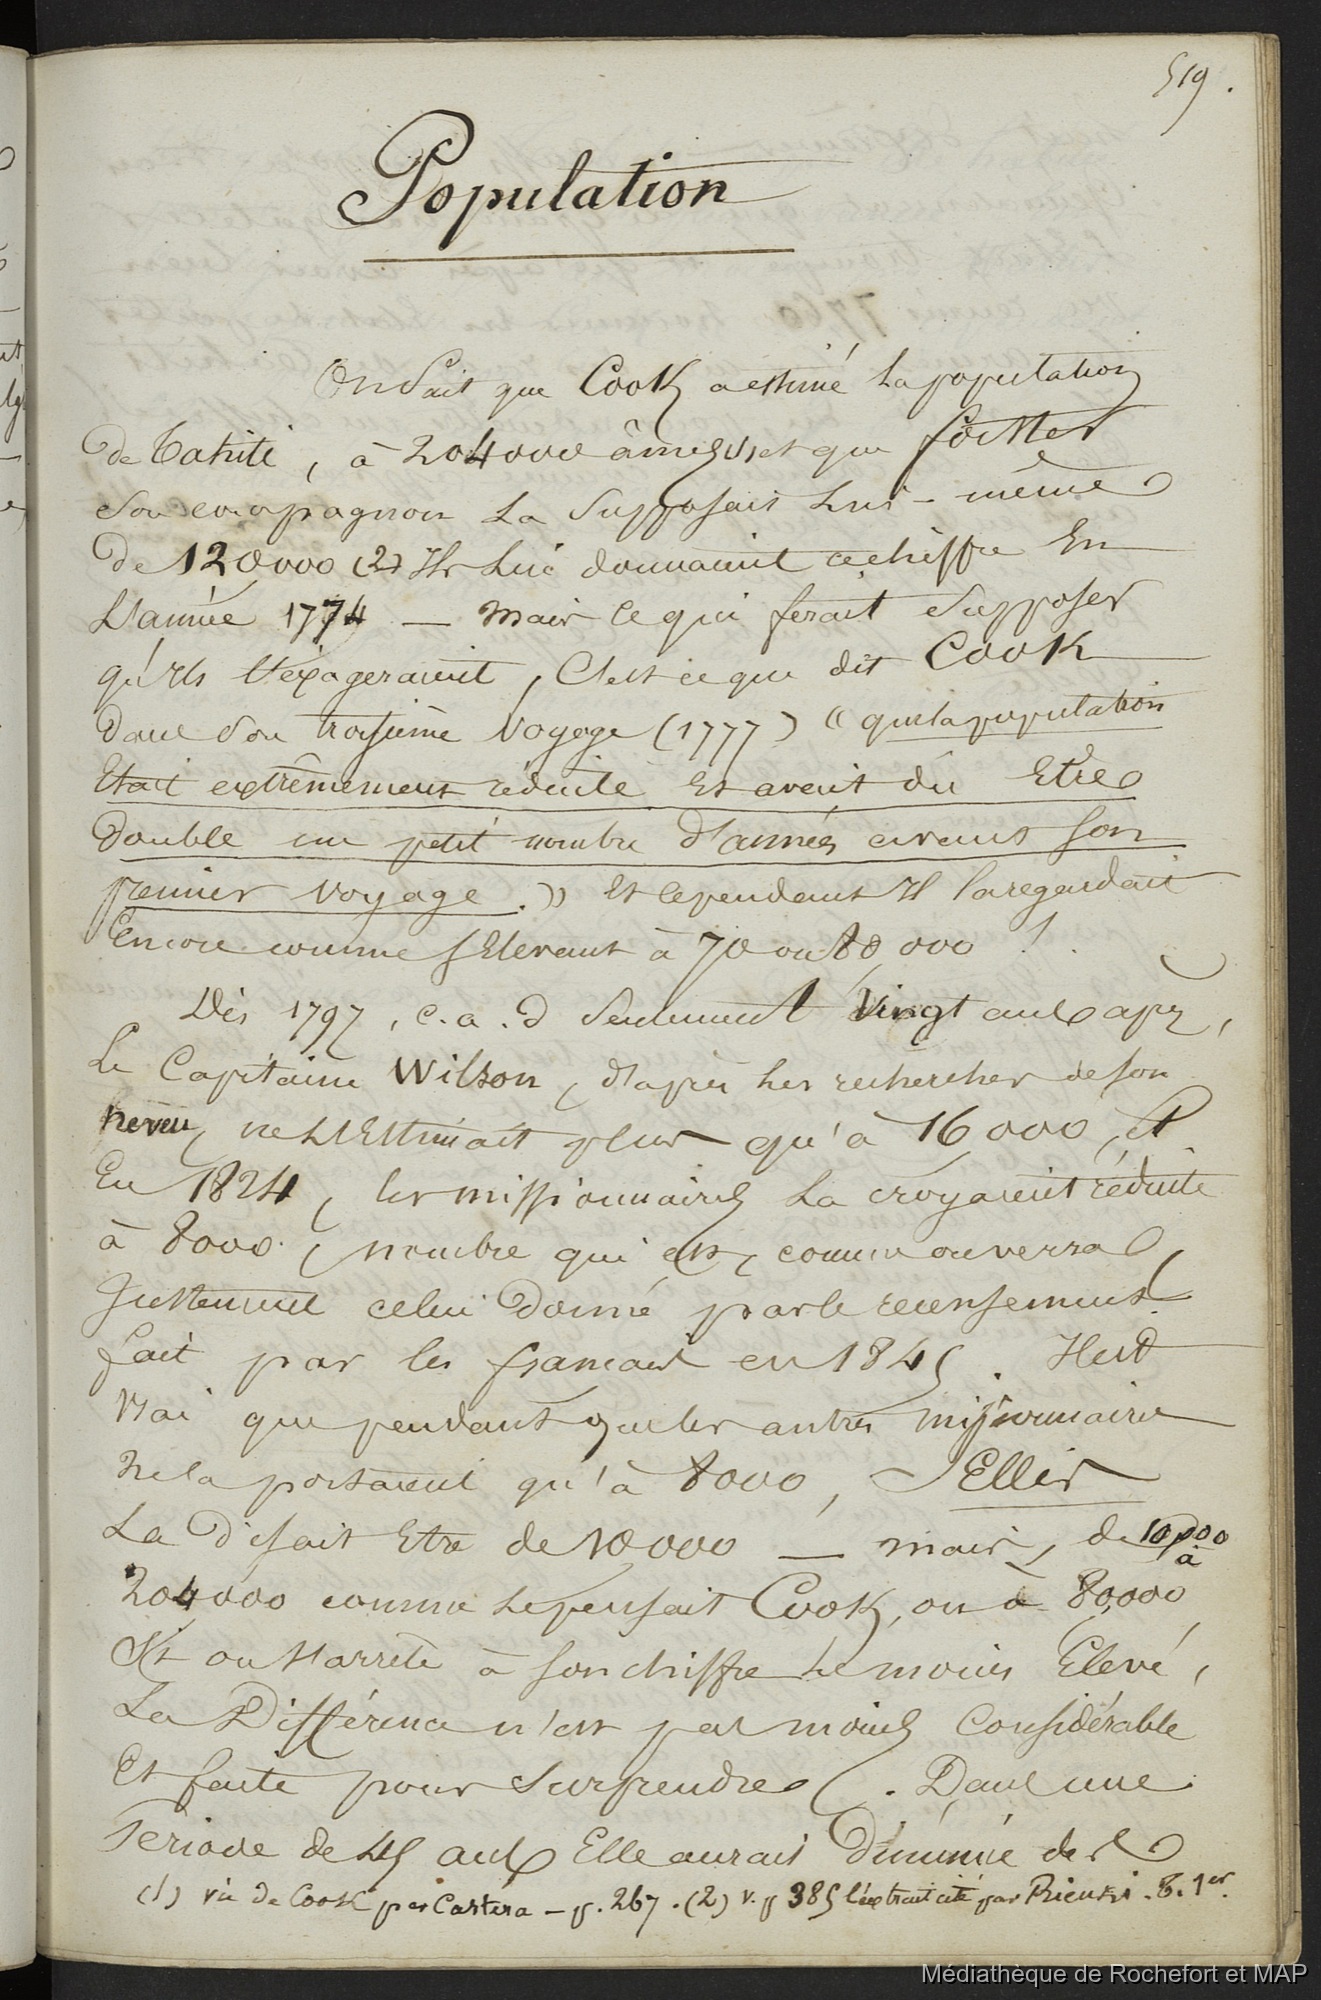 519.
Population
On sait que Cook a estimé la population
de Tahiti, à 204000 âmes (1) et que forster
son compagnon la supposait lui-même
de 120000 (2) Ils lui donnaient ce chiffre En
L'année 1774 — mais ce qui ferait supposer
qu'ils l'éxageraient, C'est ce que dit Cook
dans son troisième voyage (1777) « que la population
Etait extrêmement réduite Et avait dû Etre
double un petit nombre d'années avant son
premier voyage. » Et cependant Il la regardait
Encore comme s'Elevant à 70 ou 80,000 !
Dès 1797, c.a.d seulement Vingt ans après,
Le Capitaine Wilson, d'après les recherches de son
neveu, ne L'Estimait plus qu'à 16,000, Et
En 1824, les missionnaires La croyaient réduite
à 8000, nombre qui est, comme on verra,
Justement celui donné par le recensement
fait par les français en 1845. Il est
vrai que pendant que les autres missionnaires
ne la portaient qu'à 8000, Ellis
La disait Etre de 10000 — mais, de 10,000
à
204000 comme le pensait Cook, ou à 80,000
si on s'arrête à son chiffre le moins Elevé,
La Différence n'est pas moins Considérable
Et faite pour surprendre. Dans une
Periode de 45 ans Elle aurait diminué des
(1) vie de Cook par Castera - p. 267. (2) v. p 385 l'extrait cité par Rienzi. T. 1er.
Médiathèque de Rochefort et MAP